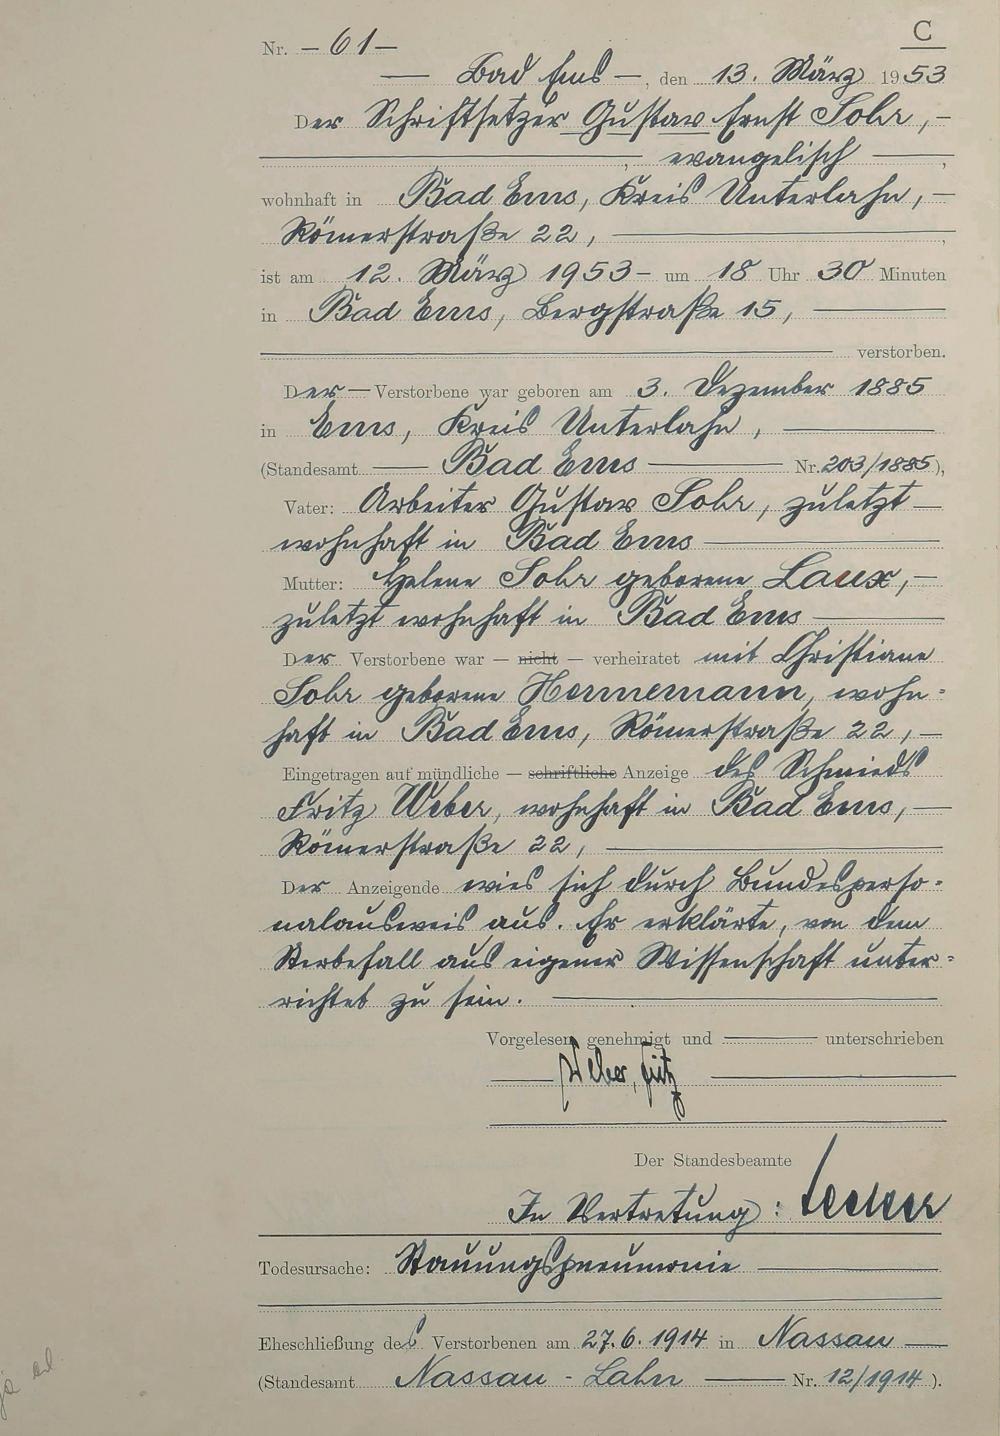 C
Nr. – 61 –
— Bad Ems —, den 13. März 1953
Der Schriftsetzer Gustav Ernst Sohr, –
, evangelisch —,
wohnhaft in Bad Ems, Kreis Unterlahn, –
Römerstraße 22, —,
ist am 12. März 1953 – um 18 Uhr 30 Minuten
in Bad Ems, Bergstraße 15, —
verstorben.
Der — Verstorbene war geboren am 3. Dezember 1885
in Ems, Kreis Unterlahn, —
(Standesamt — Bad Ems — Nr. 203/1885),
Vater: Arbeiter Gustav Sohr, zuletzt –
wohnhaft in Bad Ems —
Mutter: Helene Sohr geborene Laux, –
zuletzt wohnhaft in Bad Ems —
Der Verstorbene war — nicht — verheiratet mit Christiane
Sohr geborene Hennemann, wohn=
haft in Bad Ems, Römerstraße 22, –
Eingetragen auf mündliche — schriftliche Anzeige des Schmieds
Fritz Weber, wohnhaft in Bad Ems, –
Römerstraße 22, —
Der Anzeigende wies sich durch Bundesperso=
nalausweis aus. Er erklärte, von dem
Sterbefall aus eigener Wissenschaft unter=
richtet zu sein. —
Vorgelesen, genehmigt und — unterschrieben
— Weber, Fritz —
Der Standesbeamte
In Vertretung:
Todesursache: Stauungspneumonie —
Eheschließung des Verstorbenen am 27.6.1914 in Nassau —
(Standesamt Nassau - Lahn — Nr. 12/1914).